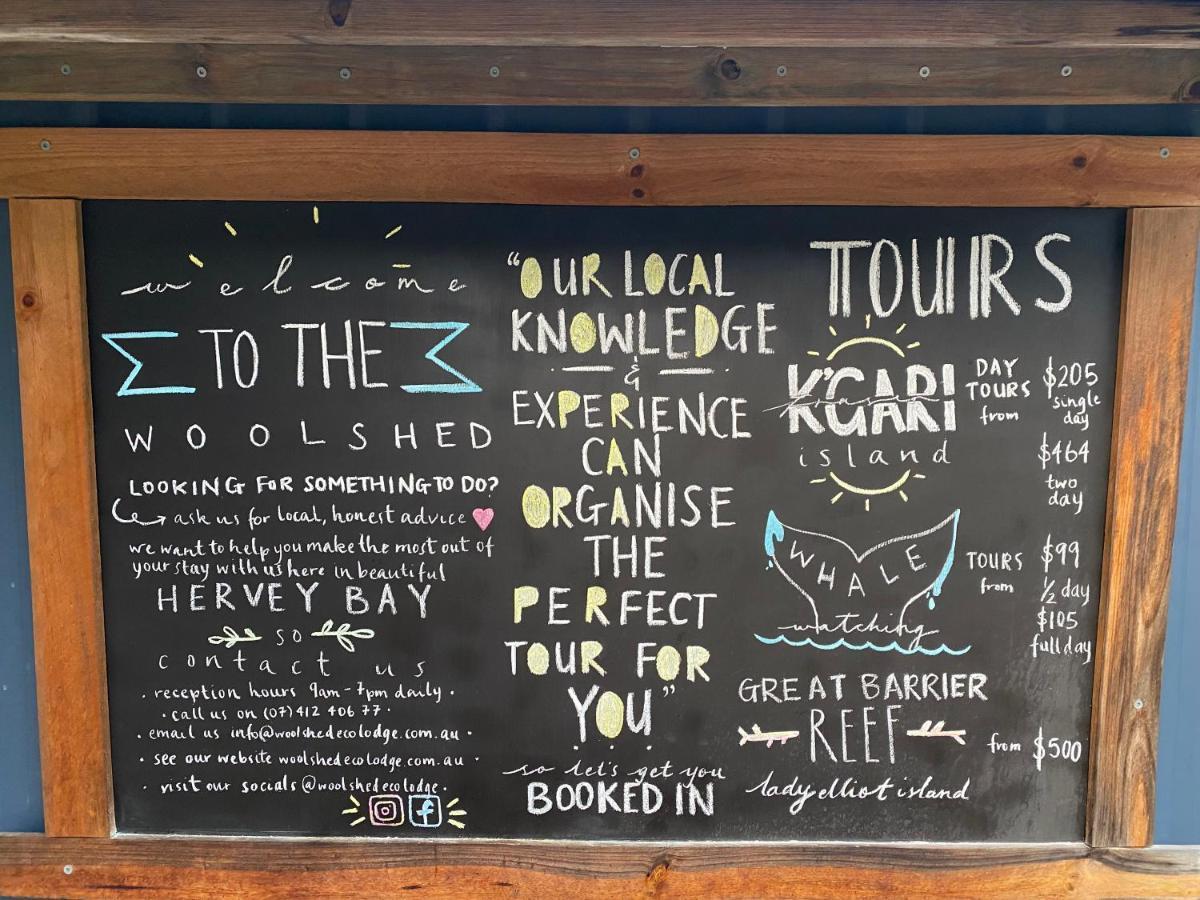 welcome
TO THE
WOOLSHED
LOOKING FOR SOMETHING TO DO?
ask us for local, honest advice
we want to help you make the most out of
your stay with us here in beautiful
HERVEY BAY
so
contact us
· reception hours 9am - 7pm daily ·
· call us on (07) 412 406 77 ·
· email us info@woolshedecolodge.com.au ·
· see our website woolshedecolodge.com.au ·
· visit our socials @woolshedecolodge ·
"OUR LOCAL
KNOWLEDGE
&
EXPERIENCE
CAN
ORGANISE
THE
PERFECT
TOUR FOR
YOU"
so let's get you
BOOKED IN
TOURS
K'GARI
island
DAY
TOURS
from
$205
single
day
$464
two
day
WHALE
watching
TOURS
from
$99
1/2 day
$105
full day
GREAT BARRIER
REEF
lady elliot island
from $500